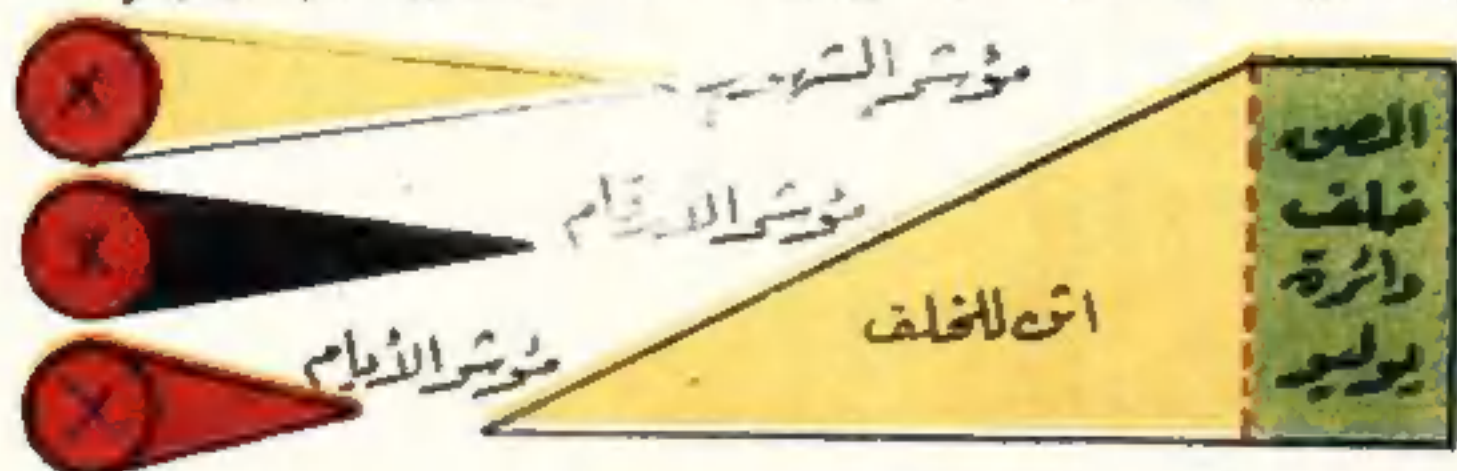 مؤشر الشهور
مؤشر الأرقام
مؤشر الأيام
اثن للخلف
الصق
خلف
دائرة
يوليو